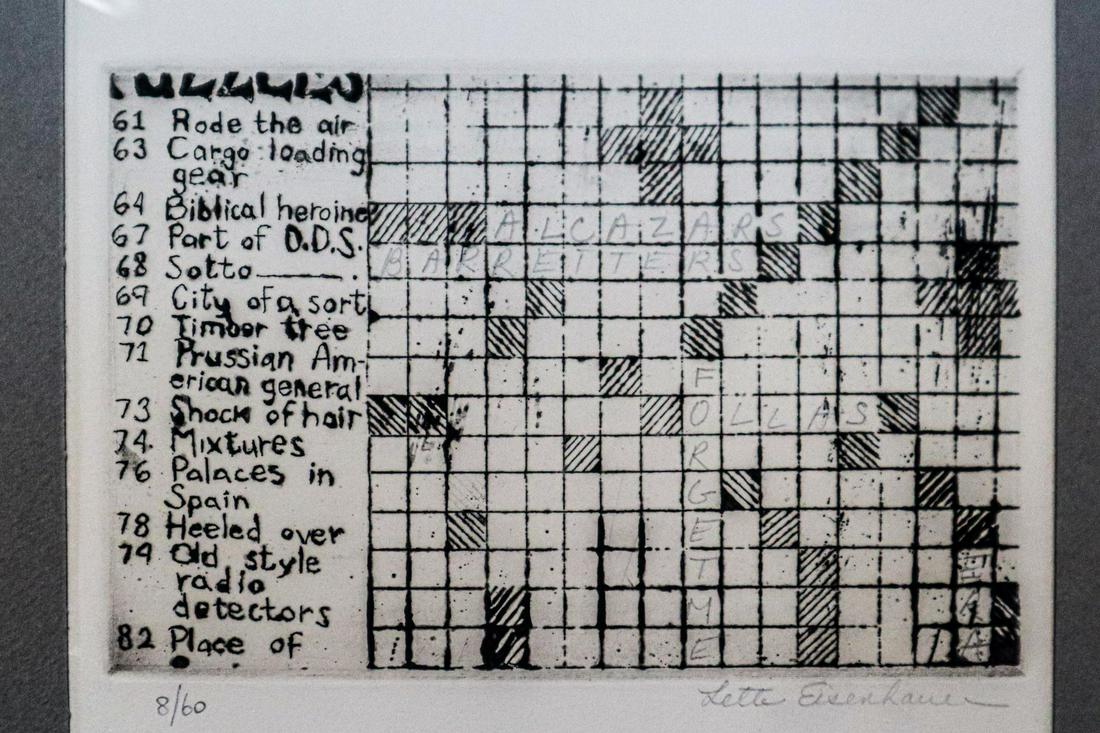 61 Rode the air
63 Cargo loading
gear
64 Biblical heroine
67 Part of O.D.S.
68 Sotto_____.
69 City of a sort
70 Timber tree
71 Prussian Am-
erican general
73 Shock of hair
74 Mixtures
76 Palaces in
Spain
78 Heeled over
79 Old style
radio
detectors
82 Place of
ALCAZARS
BARRETTERS
OLLAS
FORGETME
8/60
Lette Eisenhauer